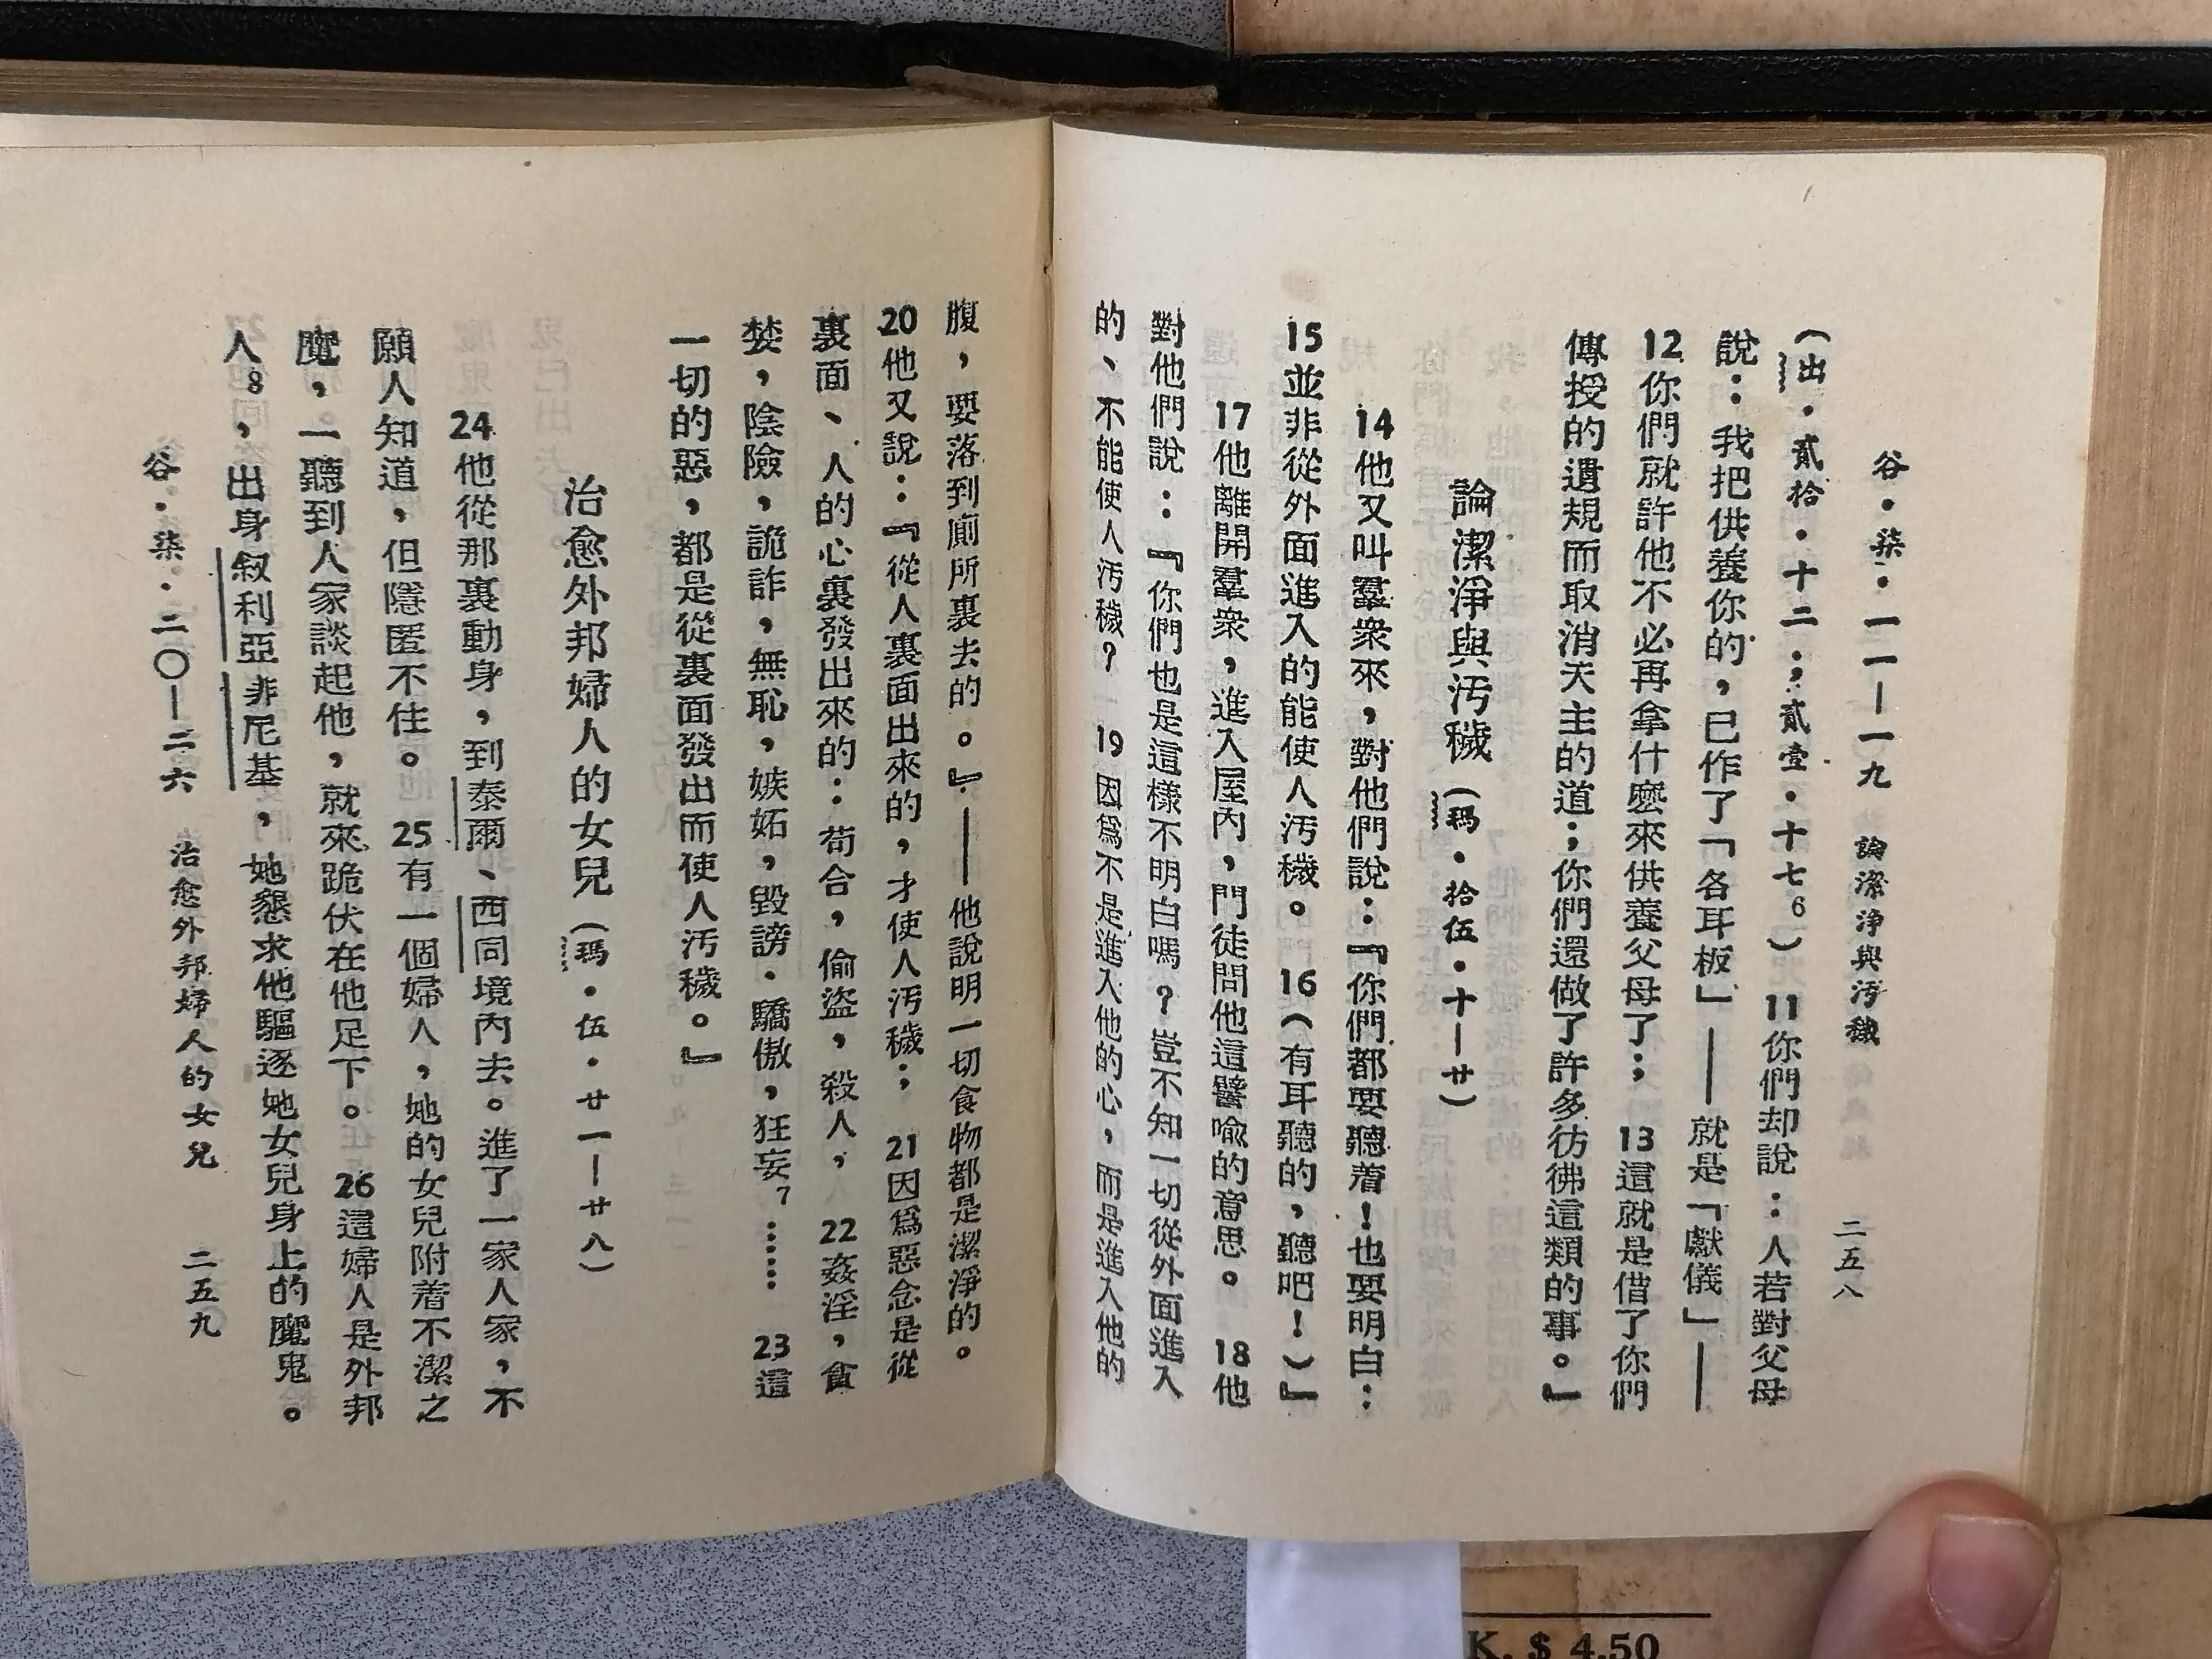 谷・柒・一一—一九　論潔淨與汚穢　二五八
（出・貳拾・十二；貳壹・十七6）　11你們却說：人若對父母
說：我把供養你的，已作了「各耳板」——就是「獻儀」——
12你們就許他不必再拿什麼來供養父母了；　13這就是借了你們
傳授的遺規而取消天主的道；你們還做了許多彷彿這類的事。』
論潔淨與汚穢（瑪・拾伍・十—廿）
14他又叫羣衆來，對他們說：『你們都要聽着！也要明白：
15並非從外面進入的能使人汚穢。　16（有耳聽的，聽吧！）』
17他離開羣衆，進入屋內，門徒問他這譬喻的意思。　18他
對他們說：『你們也是這樣不明白嗎？豈不知一切從外面進入
的、不能使人汚穢？　19因爲不是進入他的心，而是進入他的
腹，要落到廁所裏去的。』——他說明一切食物都是潔淨的。
20他又說：『從人裏面出來的，才使人汚穢；　21因爲惡念是從
裏面、人的心裏發出來的：苟合，偷盜，殺人，　22姦淫，貪
婪，陰險，詭詐，無恥，嫉妬，毀謗・驕傲，狂妄7……　23這
一切的惡，都是從裏面發出而使人汚穢。』
治愈外邦婦人的女兒（瑪・伍・廿一—廿八）
24他從那裏動身，到泰爾、西同境內去。進了一家人家，不
願人知道，但隱匿不住。　25有一個婦人，她的女兒附着不潔之
魔，一聽到人家談起他，就來跪伏在他足下。　26這婦人是外邦
人8，出身叙利亞非尼基，她懇求他驅逐她女兒身上的魔鬼。
谷・柒・二〇—二六　治愈外邦婦人的女兒　二五九
K. $ 4.50